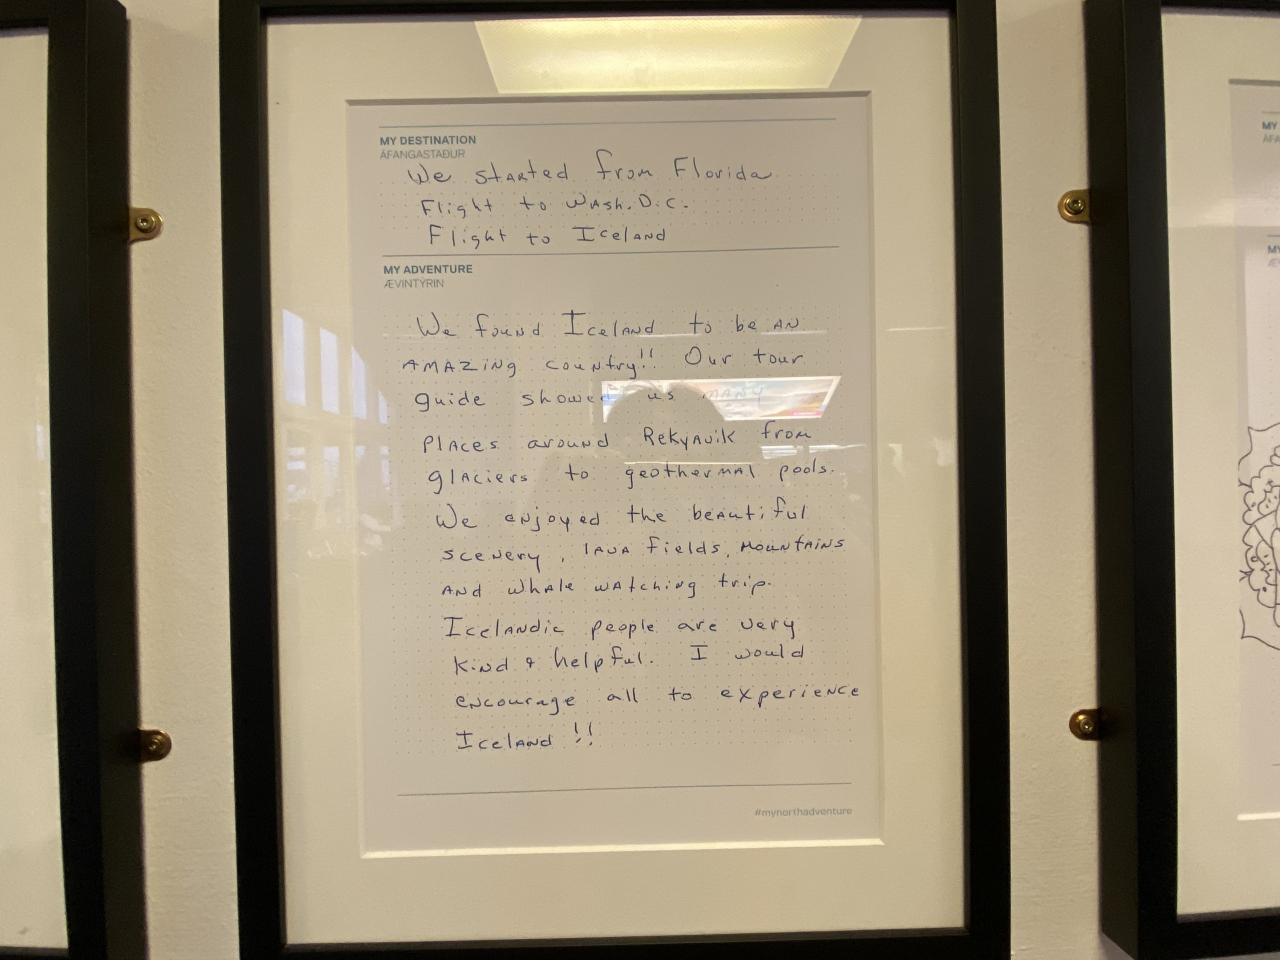 MY DESTINATION
ÁFANGASTAÐUR
We started from Florida
Flight to Wash. D.C.
Flight to Iceland
MY ADVENTURE
ÆVINTÝRIN
We found Iceland to be an
amazing country!! Our tour
guide showed us many
places around Rekyavik from
glaciers to geothermal pools.
We enjoyed the beautiful
scenery, lava fields, mountains
and whale watching trip.
Icelandic people are very
kind & helpful. I would
encourage all to experience
Iceland!!
#mynorthadventure
MY
MY